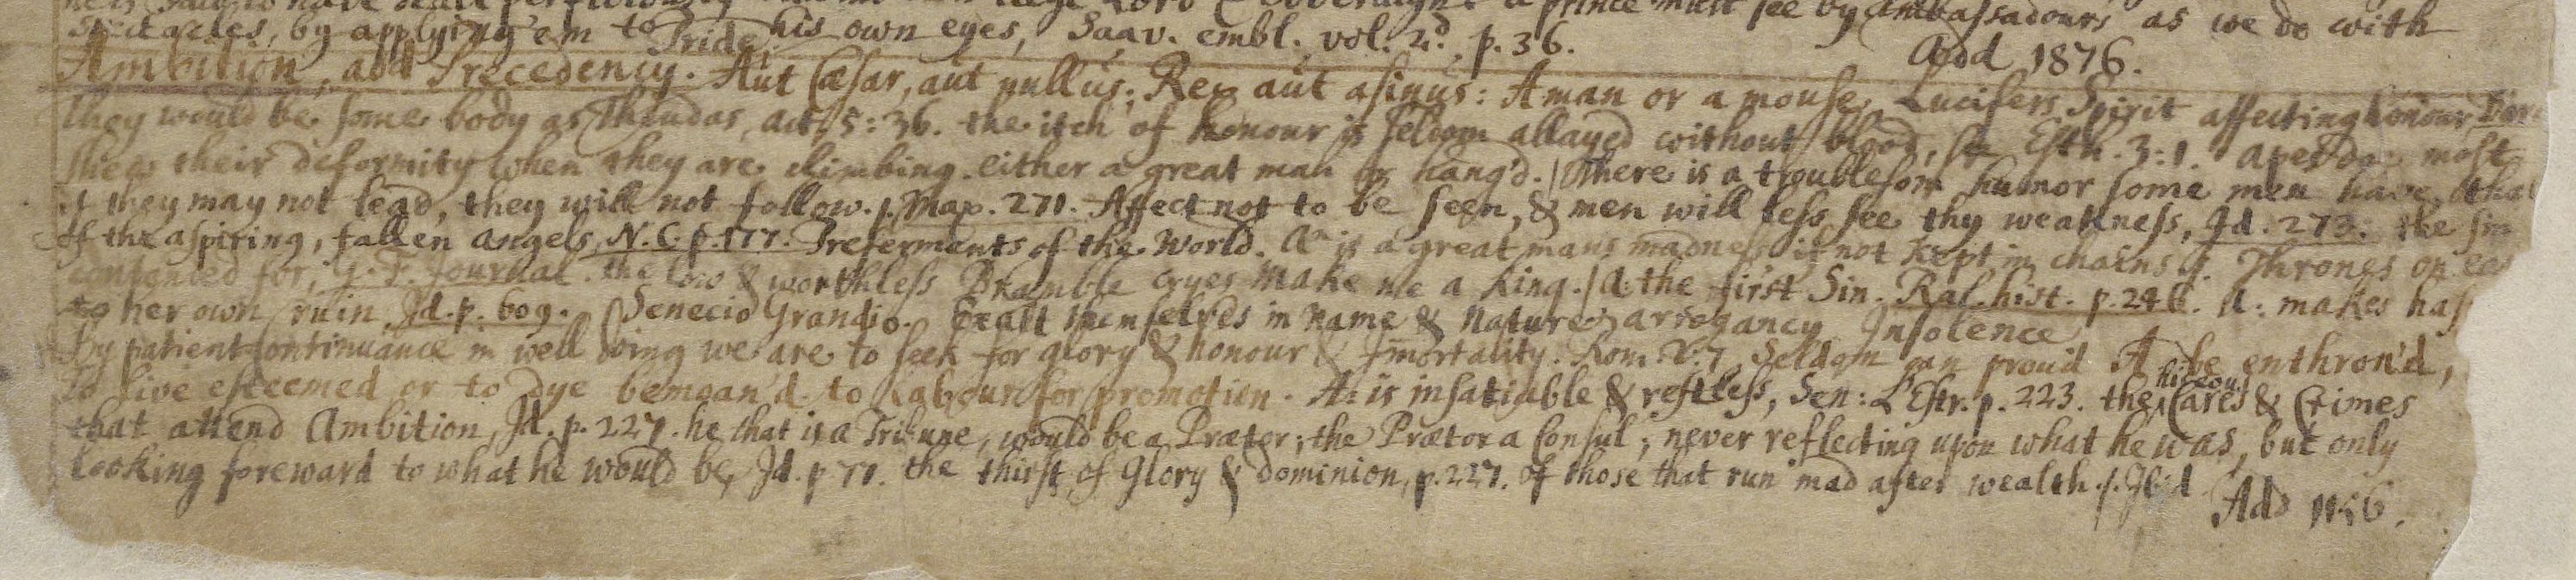 a prince must see by Ambassadours as we do with
Spectacles, by applying 'em to his own eyes, Saav. embl. vol. 2d. p. 36. Add 1876.
Pride
Ambition, and Precedency. Aut Cæsar, aut nullus; Rex aut asinus: A man or a mouse, Lucifers Spirit affecting honour
they would be some body as Theudas, Act. 5:36. the itch of honour is seldom allayed without blood, Esth. 3:1. apes do most
shew their deformity when they are climbing. either a great man or hang'd. / There is a troublesom humor some men have, that
if they may not lead, they will not follow. /. Map. 271. Affect not to be seen, & men will less see thy weakness, Id. 273. the sin
of the aspiring, fallen angels, N. C. p. 177. Preferments of the World. A: is a great mans madness if not kept in chains /. Thrones on
contended for, G. F. Journal. the low & worthless Bramble cryes make me a king. / A: the first Sin. Ral. hist. p. 246. A: makes
to her own ruin, Id. p. 609. Senecio Grandio. Exalt themselves in name & nature arrogancy Insolence
By patient continuance in well doing we are to seek for glory & honour & Immortality. Rom. 2:7. Seldom can proud A be enthron'd,
To live esteemed or to dye bemoan'd. to Labour for promotion. A: is insatiable & restless, Sen: L'Estr. p. 223. the hideous Cares & Crimes
that attend Ambition, Id. p. 227. he that is a Tribune, would be a Prætor; the Prætor a Consul; never reflecting upon what he was, but only
looking foreward to what he would be, Id. p 77. the thirst of Glory & dominion, p. 227. of those that run mad after wealth. /. Ibid
Add 1156.